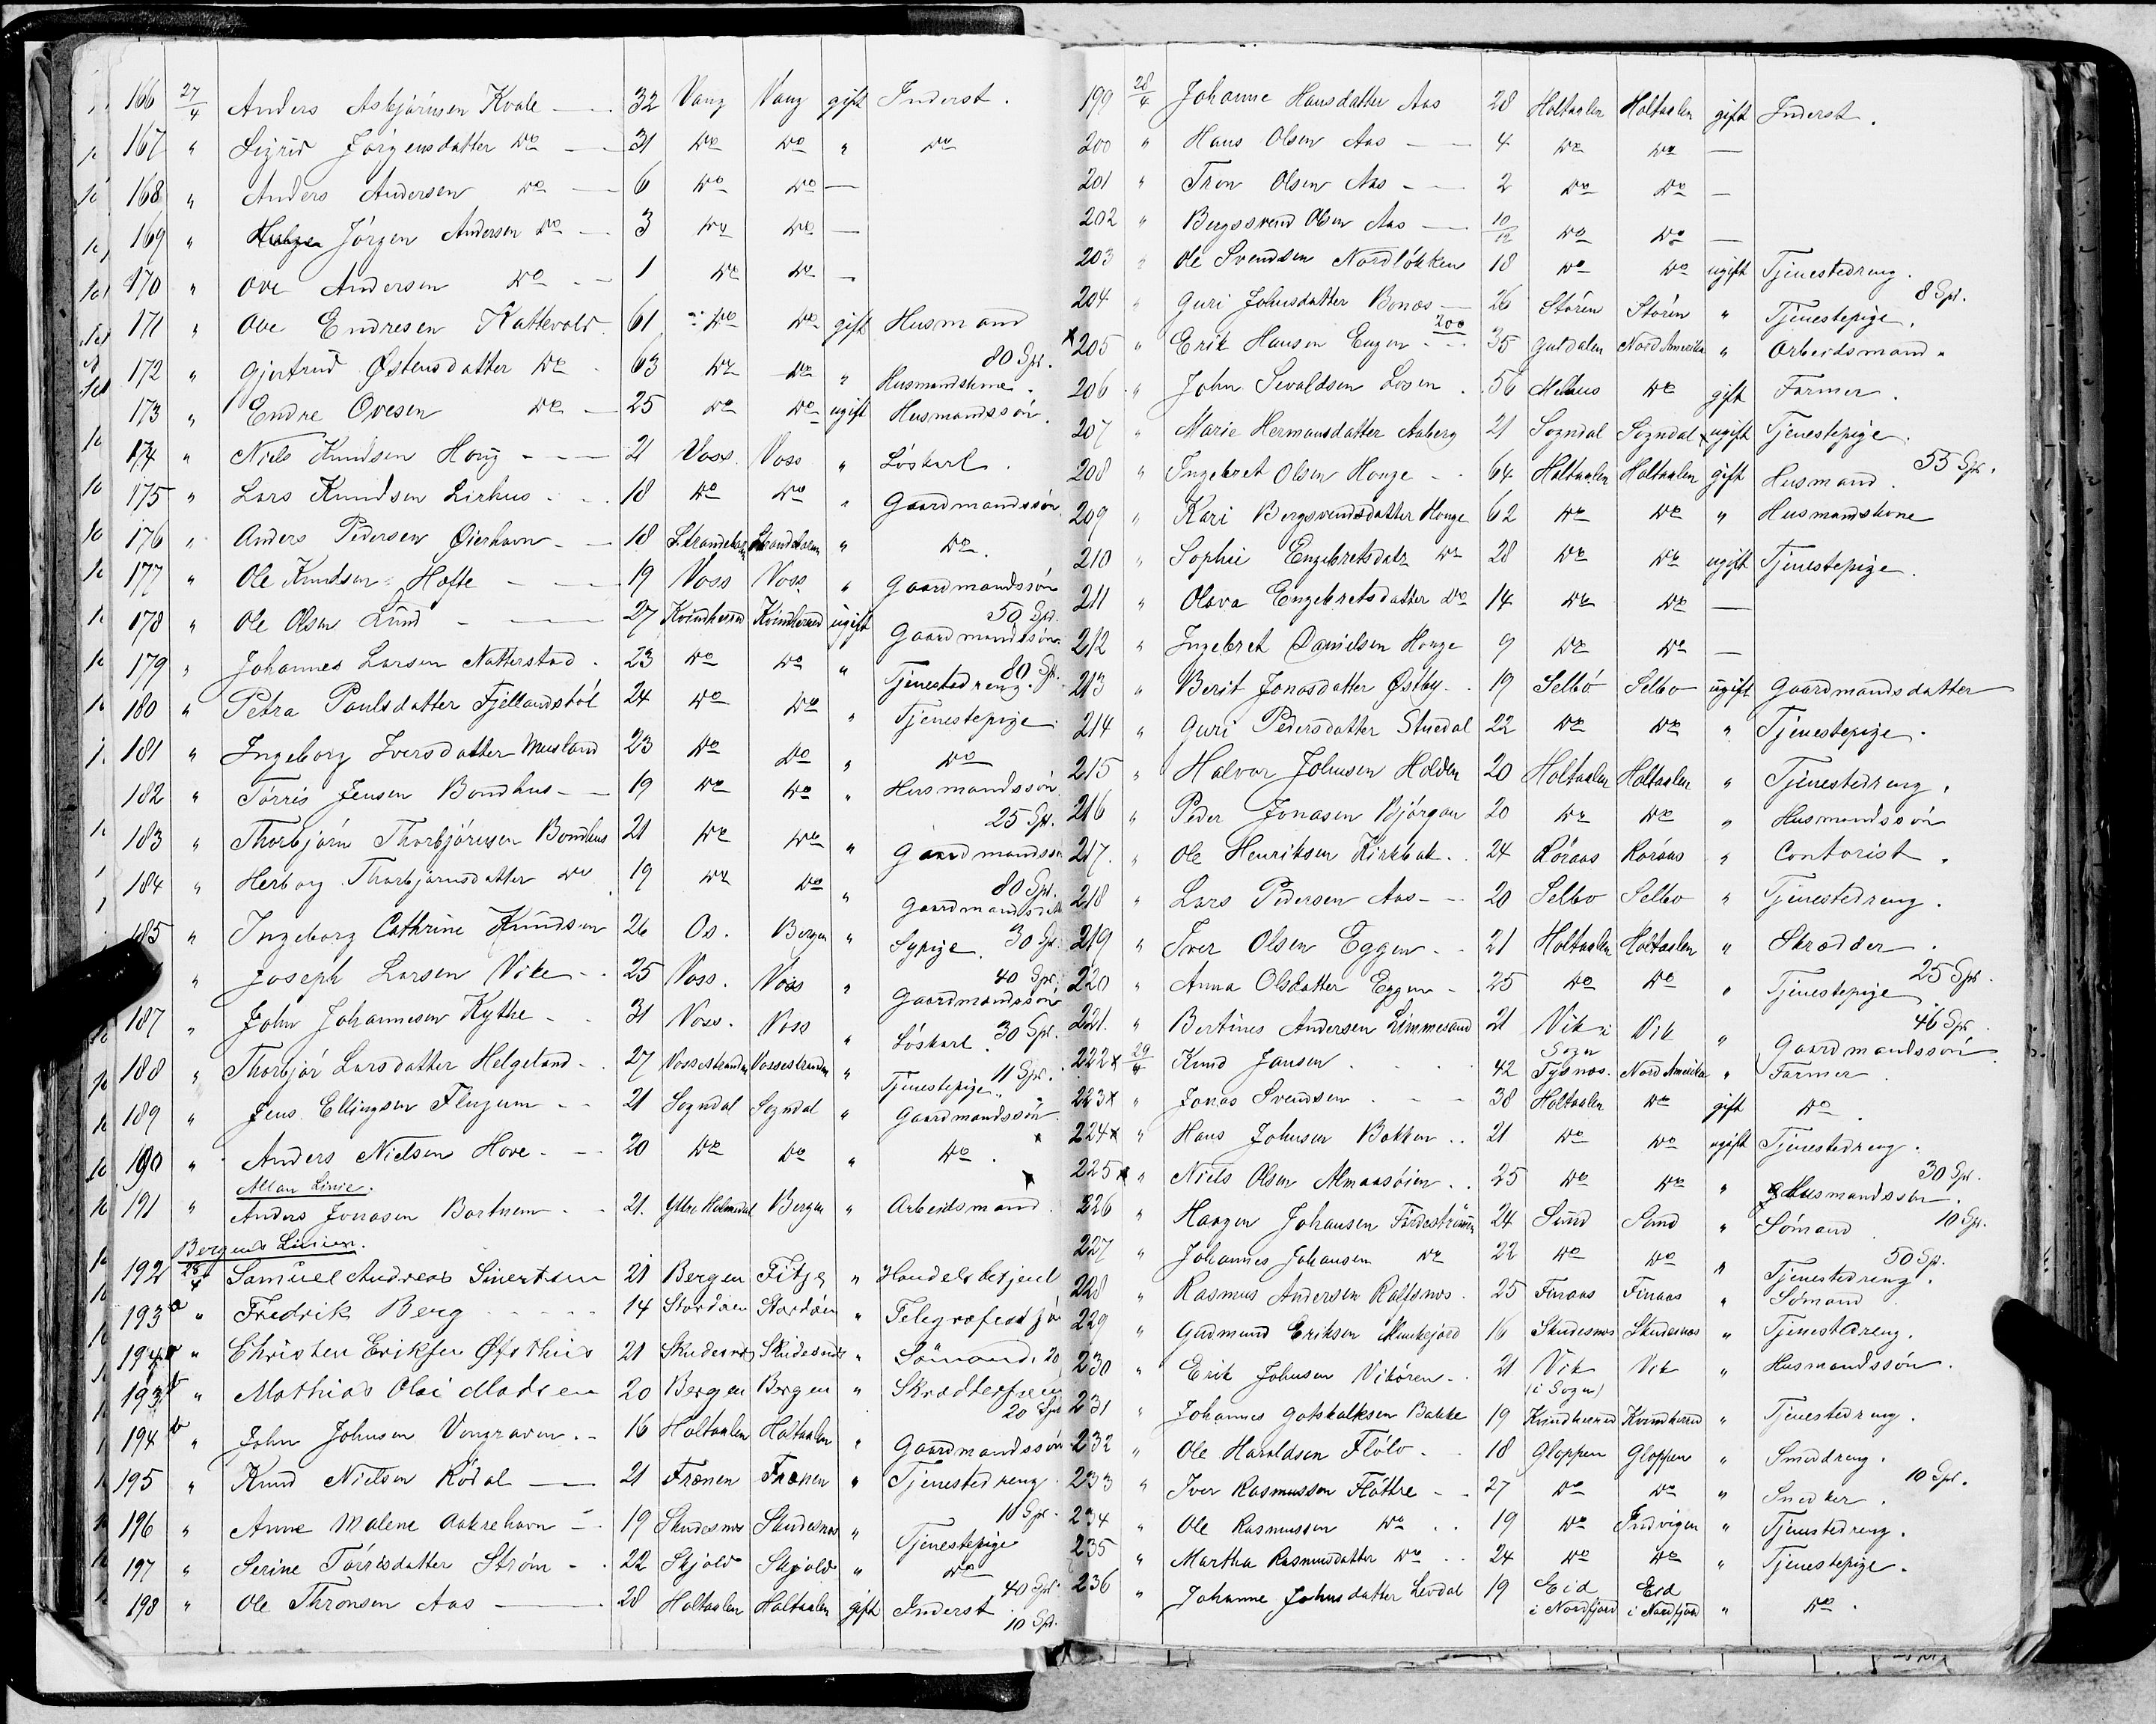 166 27/4 Anders Asbjörnsen Kvale 32 Vang Vang gift Inderst.
167 " Sigrid Jörgensdatter do 31 do do " do
168 " Anders Andersen do 6 do do —
169 " Jörgen Andersen do 3 do do —
170 " Ove Andersen do 1 do do —
171 " Ove Endresen Kattevold 61 do do gift Husmand
80 Spd.
172 " Gjertrud Østensdatter do 63 do do " Husmandskone.
173 " Endre Ovesen do 25 do do ugift Husmandssön.
174 " Niels Knudsen Houg 21 Voss Voss " Löskarl.
175 " Lars Knudsen Lirhus 18 do do " Gaardmandssön
176 " Anders Pedersen Øierhavn 18 Strandebarm Strandebarm " do.
177 " Ole Knudsen Hofte 19 Voss Voss " Gaardmandssön
50 Spd.
178 " Ole Olsen Lund 27 Kvindherred Kvindherred ugift Gaardmandssön
80 Sp.
179 " Johannes Larsen Natterstad 23 do do " Tjenestedreng.
180 " Petra Paulsdatter Fjellandsböl 24 do do " Tjenestepige.
181 " Ingeborg Iversdatter Musland 23 do do " do
182 " Törris Jensen Bondhus 19 do do " Husmandssön
25 Sp.
183 " Thorbjörn Thorbjörnsen Bondhus 21 do do " Gaardmandssn
80 Spd.
184 " Herborg Thorbjörnsdatter do 19 do do " Gaardmandsdtt
185 " Ingeborg Cathrine Knudsen 26 Os. Bergen " Sypige. 30 Sp.
40 Spd.
" Joseph Larsen Vike 25 Voss. Voss " Gaardmandssön
187 " John Johannesen Kythe 31 Voss. Voss " Löskarl. 30 Spd.
188 " Thorbjör Larsdatter Helgeland 27 Vossestranden Vossestranden " Tjenestepige 11 Spd.
189 " Jens Ellingsen Flugum 21 Sogndal Sogndal " Gaardmandssön
190 " Anders Nielsen Hove 20 do do " do.
Allan Linie.
191 " Anders Jonasen Bortnem 21. Ytre Holmedal Bergen " Arbeidsmand.
Bergens Linien.
192 28/4 Samüel Andreas Sivertsen 21 Bergen Fitje " Handelsbetjent
193 a " Fredrik Berg 14 Stordöen Stordöen "
194 a " Christen Eriksen Øfsthus 21 Skudesnes Skudesnes " Sömand. 20
193 b " Mathias Olai Madsen 20 Bergen Bergen "
20 Spd
194 b " John Johnsen Vongraven 16 Holtaalen Holtaalen " Gaardmandssön
195 " Knud Nielsen Rödal 21 Frænen Frænen " Tjenestedreng.
10 Spd.
196 " Anne Malene Aakrehavn 19 Skudesnes Skudesnes " Tjenestepige
197 " Serine Törrisdatter Ström 22 Skjold Skjold " do
40 Spd.
198 " Ole Thronsen Aas 28 Holtaalen Holtaalen gift Inderst
10 Spd.
199 28/4 Johanne Hansdatter Aas 28 Holtaalen Holtaalen gift Inderst.
200 " Hans Olsen Aas 4 do do —
201 " Tron Olsen Aas 2 do do —
202 " Bergsvend Olsen Aas 10/12 do do —
203 " Ole Svendsen Nordlökken 18 do do ugift Tjenestedreng.
8 Spd.
204 " Guri Johnsdatter Bonæs 26 Stören Stören " Tjenestepige.
200
x 205 " Erik Hansen Engen 35 Guldalen Nord Amerika " Arbeidsmand
206 " John Sevaldsen Losen 56 Melhus do gift Farmer.
207 " Marie Hermansdatter Aaberg 21 Sogndal Sogndal ugift Tjenestepige.
55 Spd.
208 " Ingebret Olsen Houge 64 Holtaalen Holtaalen gift Husmand.
209 " Kari Bergsvendsdatter Houge 62 do do " Husmandskone
210 " Sophie Engebretsdatr do 28 do do ugift Tjenestepige.
211 " Olava Engebretsdatter do 14 do do —
212 " Ingebret Danielsen Houge 9 do do —
213 " Berit Jonasdatter Østby 19 Selbö Selbo ugift Gaardmandsdatter
214 " Guri Pedersdatter Stuedal 22 do do " Tjenestepige.
215 " Halvor Johnsen Holden 20 Holtaalen Holtaalen " Tjenestedreng.
216 " Peder Jonasen Björgan 20 do do " Husmandssön
217. " Ole Henriksen Kirkbak 24 Röraas Röraas " Contorist.
218 " Lars Pedersen Aas 20 Selbo Selbo " Tjenestedreng.
219 " Iver Olsen Eggen 21 Holtaalen Holtaalen " Skrædder.
25 Spd.
220 " Anna Olsdatter Eggen 25 do do " Tjenestepige
46 Spd.
221. " Bertines Andersen Limmesand 21 Vik i Sogn Vik " Gaardmandssön
222 x 29/4 Knud Jansen 42 Tysnæs. Nord Amerika " Farmer.
223 x " Jonas Svendsen 38 Holtaalen do gift do.
224 x " Hans Johnsen Bakken 21 do do ugift Tjenestedreng.
30 Spd.
225 x " Niels Olsen Almaasöien 25 do do " Husmandssön.
226 " Haagen Johansen 24 Sund Sund " Sömand 10 Spd.
50 Sp.
227 " Johannes Johansen do 22 do do " Tjenestedreng.
228 " Rasmus Andersen Ralfsnes 25 Finaas Finaas " Sömand
229 " Gudmund Eriksen Munkejord 16 Skudesnes Skudesnes " Tjenestdreng.
230 " Erik Johnsen Vikören 21 Vik (i Sogn) Vik " Husmandssön.
231 " Johannes Gotskalksen Bakke 19 Kvindherred Kvindherred " Tjenestedreng.
232 " Ole Haraldsen Flölo 18 Gloppen Gloppen " Smeddreng.
10 Spd.
233 " Iver Rasmussen Flöttre 27 do do " Snedker.
234 " Ole Rasmussen do 19 do Indvigen " Tjenestedreng.
235 " Martha Rasmusdatter do 24 do do " Tjenestepige.
236 " Johanne Johnsdatter Levdal 19 Eid i Nordfjord Eid i Nordfjord " do.